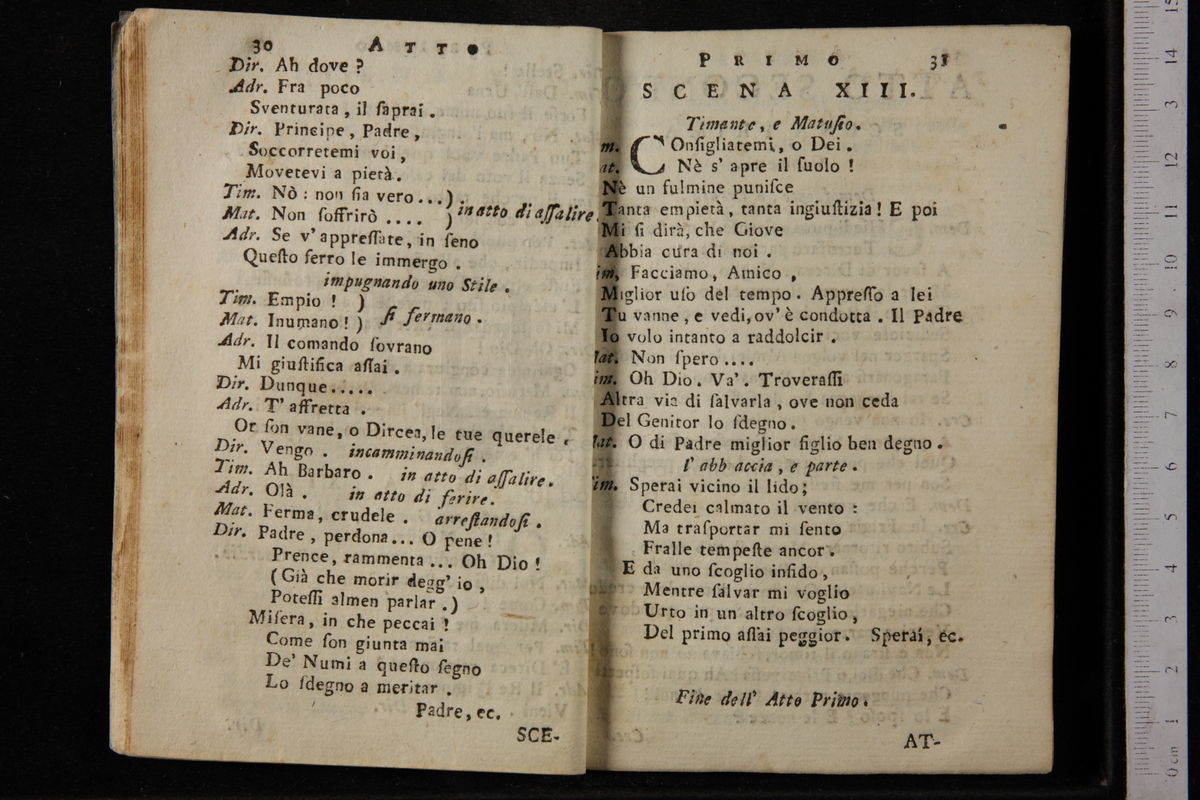 30 ATTO
Dir. Ah dove ?
Adr. Fra poco
Sventurata , il ſaprai .
Dir. Principe, Padre,
Soccorretemi voi,
Movetevi a pietà.
Tim. Nò : non ſia vero ...) .
Mat. Non ſoffrirò .... ) in atto di aſſalire.
Adr. Se v' appreſſate, in ſeno
Queſto ferro le immergo .
impugnando uno Stile .
Tim. Empio ! )
Mat. Inumano ! ) ſi fermano .
Adr. Il comando ſovrano
Mi giuſtifica aſſai .
Dir. Dunque.....
Adr. T' affretta .
Or ſon vane, o Dircea, le tue querele .
Dir. Vengo . incamminandoſi .
Tim. Ah Barbaro . in atto di aſſalire.
Adr. Olà . in atto di ferire.
Mat. Ferma, crudele . arreſtandoſi .
Dir. Padre, perdona... O pene !
Prence, rammenta ... Oh Dio !
(Già che morir degg' io ,
Poteſſi almen parlar .)
Miſera, in che peccai !
Come ſon giunta mai
De' Numi a queſto ſegno
Lo ſdegno a meritar .
Padre, ec.
SCE-
PRIMO 31
SCENA XIII.
Timante, e Matuſio.
m. COnſigliatemi, o Dei .
at. Nè s' apre il ſuolo !
Nè un fulmine puniſce
Tanta empietà, tanta ingiuſtizia ! E poi
Mi ſi dirà, che Giove
Abbia cura di noi .
im. Facciamo, Amico ,
Miglior uſo del tempo . Appreſſo a lei
Tu vanne , e vedi, ov' è condotta . Il Padre
Io volo intanto a raddolcir .
at. Non ſpero ....
im. Oh Dio . Va'. Troveraſſi
Altra via di ſalvarla , ove non ceda
Del Genitor lo ſdegno .
at. O di Padre miglior figlio ben degno .
l' abb accia , e parte .
im. Sperai vicino il lido ;
Credei calmato il vento :
Ma traſportar mi ſento
Fralle tempeſte ancor .
E da uno ſcoglio infido ,
Mentre ſalvar mi voglio
Urto in un altro ſcoglio ,
Del primo aſſai peggior . Sperai, ec.
Fine dell' Atto Primo .
AT-